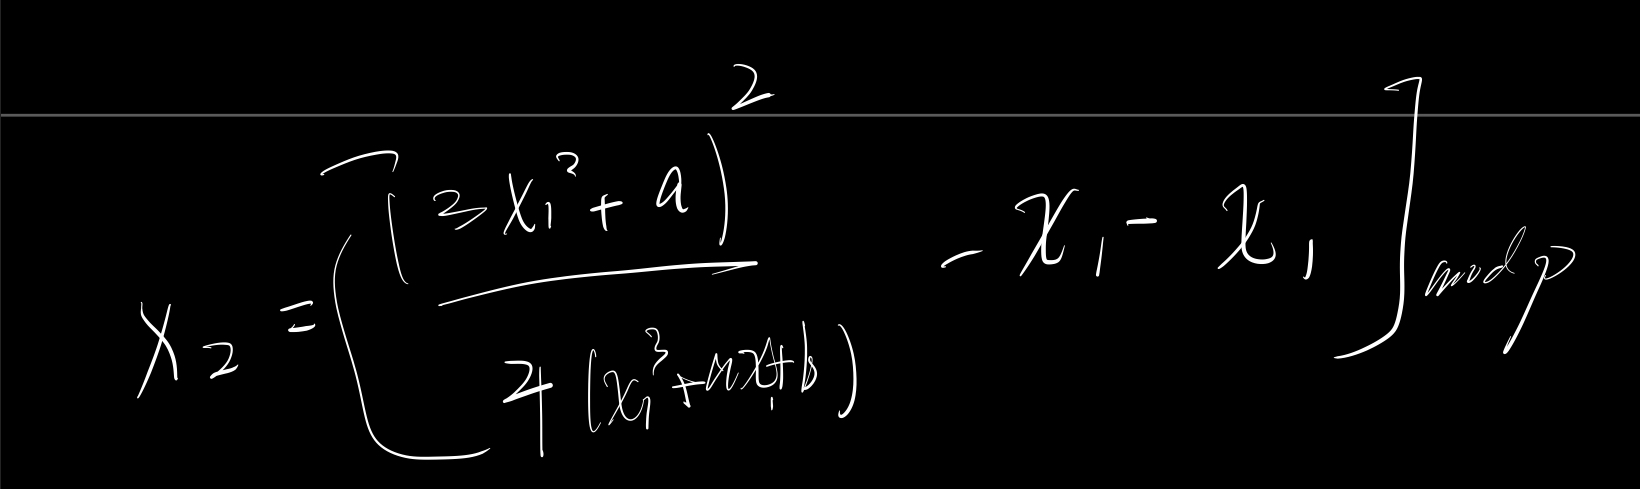 x₂ = [ (3x₁² + a)² / 4(x₁³ + ax₁ + b) - x₁ - x₁ ] mod p